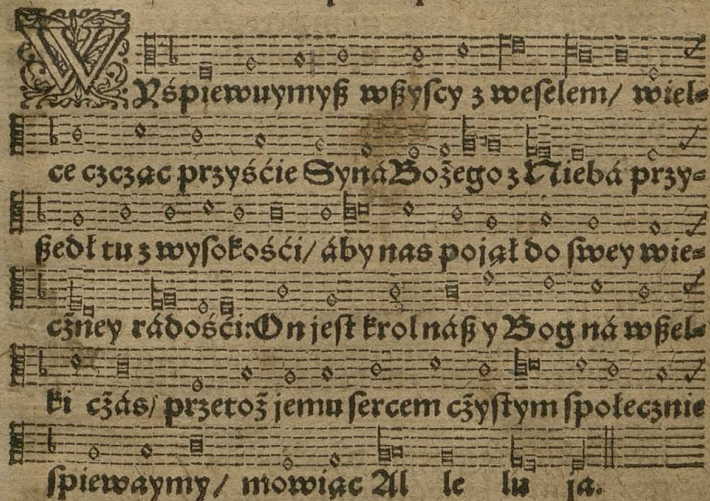 WYśpiewuymyß wßyscy z weselem/ wiel-
ce czcząc przyśćie Syná Bożego z Niebá przy-
ßedł tu z wysokośći/ áby nas pojął do swey wie-
cżney rádośći: On jest krol náß y Bog ná wßel-
ki cżás/ przetoż jemu sercem cżystym społecznie
śpiewaymy/ mowiąc Al le lu ja.